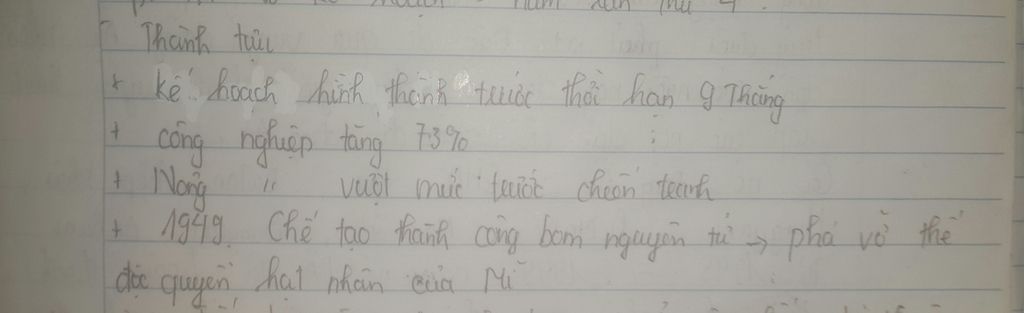 năm lần thứ 4.
- Thành tựu
+ kế hoạch hình thành trước thời hạn 9 Tháng
+ công nghiệp tăng 73%
+ Nông " vượt mức trước chiến tranh
+ 1949. Chế tạo thành công bom nguyên tử → phá vỡ thế
độc quyền hạt nhân của Mĩ